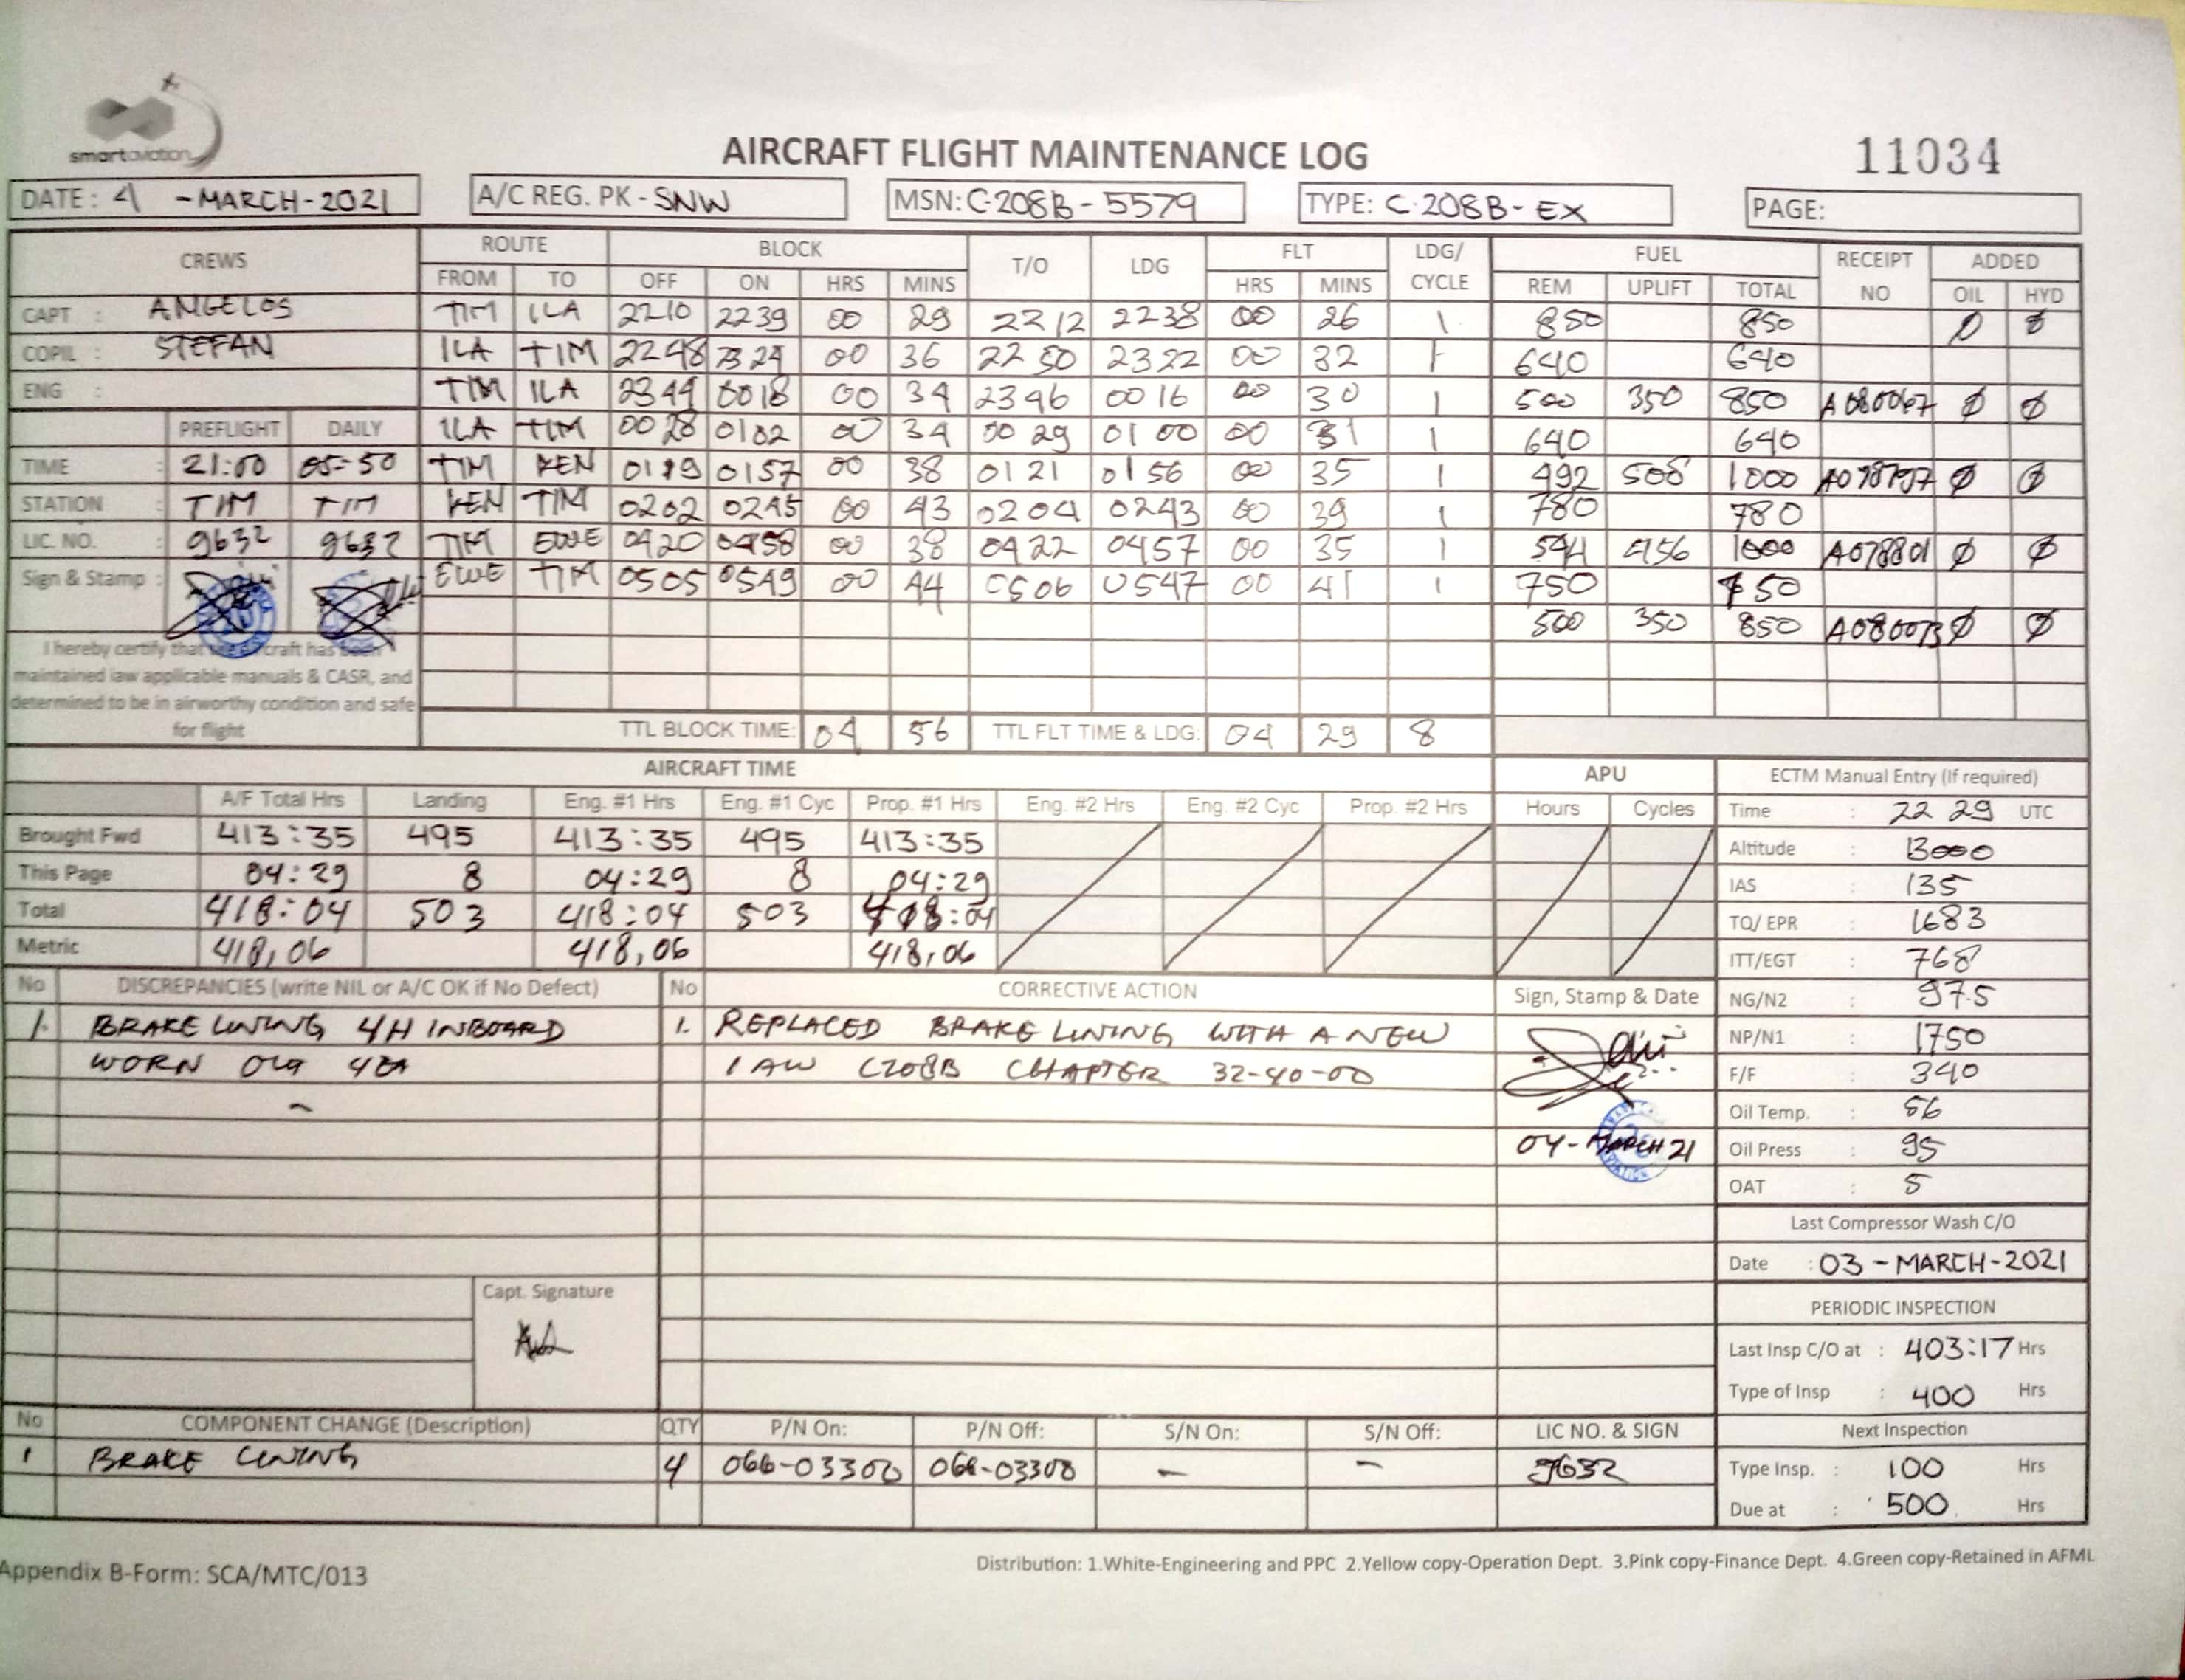 smartaviation
AIRCRAFT FLIGHT MAINTENANCE LOG
11034
DATE: 4 -MARCH-2021 A/C REG. PK-SNW MSN: C-208B-5579 TYPE: C-208B-EX PAGE:
CREWS ROUTE BLOCK T/O LDG FLT LDG/ CYCLE FUEL RECEIPT NO ADDED
FROM TO OFF ON HRS MINS HRS MINS REM UPLIFT TOTAL OIL HYD
CAPT : ANGELOS TIM ILA 2210 2239 00 29 2212 2238 00 26 1 850 850 Ø Ø
COPIL : STEFAN ILA TIM 2248 2324 00 36 22 50 2322 00 32 1 640 640
ENG : TIM ILA 2344 0018 00 34 2346 0016 00 30 1 500 350 850 A080067 Ø Ø
PREFLIGHT DAILY ILA TIM 0028 0102 00 34 00 29 01 00 00 31 1 640 640
TIME : 21:00 05:50 TIM KEN 0119 0157 00 38 0121 0156 00 35 1 492 508 1000 Ø Ø
STATION : TIM TIM KEN TIM 0202 0245 00 43 0204 0243 00 39 1 780 780
LIC. NO. : 9632 9632 TIM EWE 0420 0458 00 38 0422 0457 00 35 1 544 456 1000 A078801 Ø Ø
Sign & Stamp : EWE TIM 0505 0549 00 44 0506 0547 00 41 1 750 750
500 350 850 Ø Ø
I hereby certify that the aircraft has been
maintained iaw applicable manuals & CASR, and
determined to be in airworthy condition and safe
for flight
TTL BLOCK TIME: 04 56 TTL FLT TIME & LDG: 04 29 8
AIRCRAFT TIME APU ECTM Manual Entry (If required)
A/F Total Hrs Landing Eng. #1 Hrs Eng. #1 Cyc Prop. #1 Hrs Eng. #2 Hrs Eng. #2 Cyc Prop. #2 Hrs Hours Cycles Time : 22 29 UTC
Brought Fwd 413:35 495 413:35 495 413:35 Altitude : 13000
This Page 04:29 8 04:29 8 04:29 IAS : 135
Total 418:04 503 418:04 503 418:04 TQ/ EPR : 1683
Metric 418,06 418,06 418,06 ITT/EGT : 768
No DISCREPANCIES (write NIL or A/C OK if No Defect) No CORRECTIVE ACTION Sign, Stamp & Date NG/N2 : 97.5
1. BRAKE LINING INBOARD 1. REPLACED BRAKE LINING WITH A NEW NP/N1 : 1750
WORN OUT IAW C208B CHAPTER 32-40-00 F/F : 340
Oil Temp. : 56
04-MARCH 21 Oil Press : 95
OAT : 5
Last Compressor Wash C/O
Date : 03-MARCH-2021
Capt. Signature
PERIODIC INSPECTION
Last Insp C/O at : 403:17 Hrs
Type of Insp : 400 Hrs
No COMPONENT CHANGE (Description) QTY P/N On: P/N Off: S/N On: S/N Off: LIC NO. & SIGN Next Inspection
1 BRAKE LINING 4 066-03300 066-03300 - - 9632 Type Insp. : 100 Hrs
Due at : 500 Hrs
Appendix B-Form: SCA/MTC/013
Distribution: 1.White-Engineering and PPC 2.Yellow copy-Operation Dept. 3.Pink copy-Finance Dept. 4.Green copy-Retained in AFML